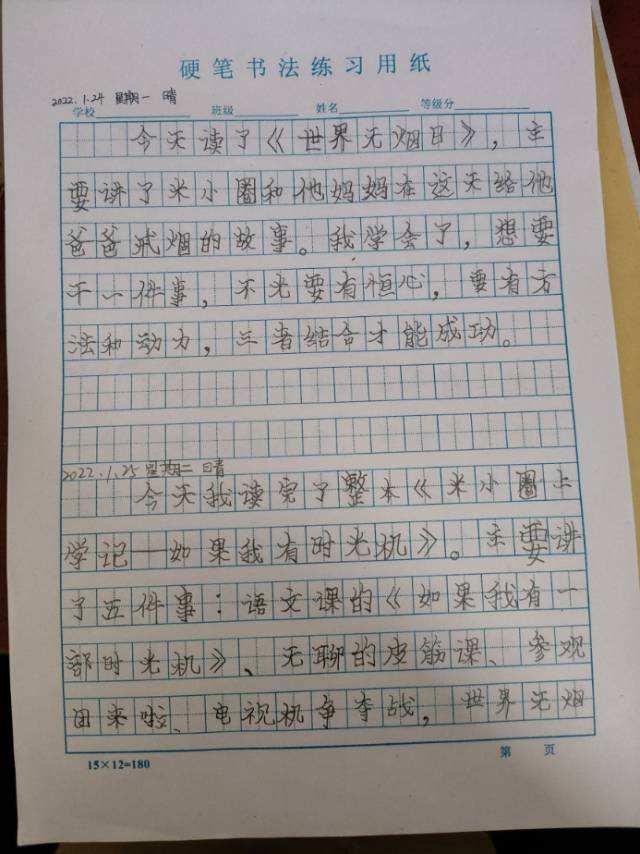 硬笔书法练习用纸
2022.1.24 星期一 晴
学校 班级 姓名 等级分
今天读了《世界无烟日》，主
要讲了米小圈和他妈妈在这天给他
爸爸戒烟的故事。我学会了，想要
干一件事，不光要有恒心，要有方
法和动力，三者结合才能成功。
2022.1.25 星期二 晴
今天我读完了整本《米小圈上
学记——如果我有时光机》。主要讲
了五件事：语文课的《如果我有一
部时光机》、无聊的皮筋课、参观
团来啦、电视机争夺战，世界无烟
15×12=180
第 页